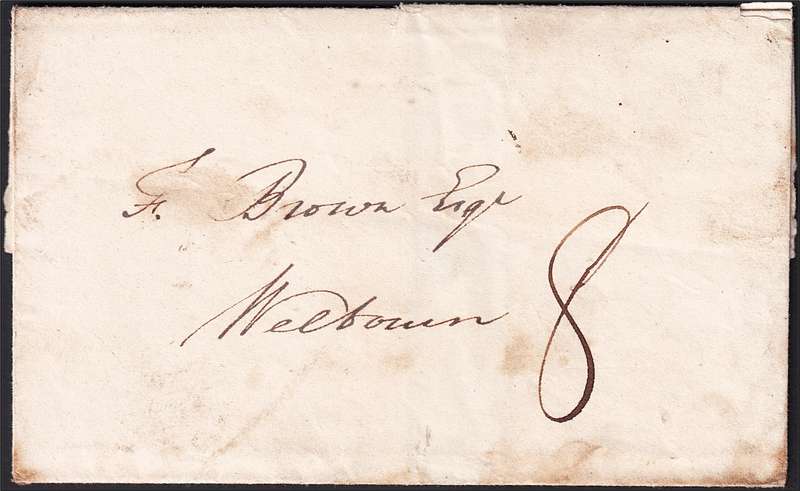 F. Brown Esqr
Welbourn 8